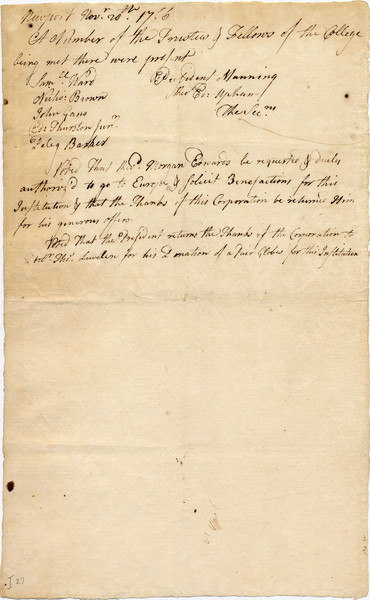 Newport Novr. 20th. 1766
A Number of the Trustees & Fellows of the College
being met there were present
Samll. Ward
Nichos. Brown
John Gano
Ed: Thurston junr.
Peleg Barker
President Manning
Revd. Ed: Upham
The Secry
Voted That the Revd. Morgan Edwards be requested & duely
authorized to go to Europe & Solicit Benefactions for this
Institution & that the Thanks of this Corporation be returned Him
for his generous offer
Voted That the President returns the Thanks of the Corporation to
Thos. for his Donation of a Pair Globes for this Institution
J 27